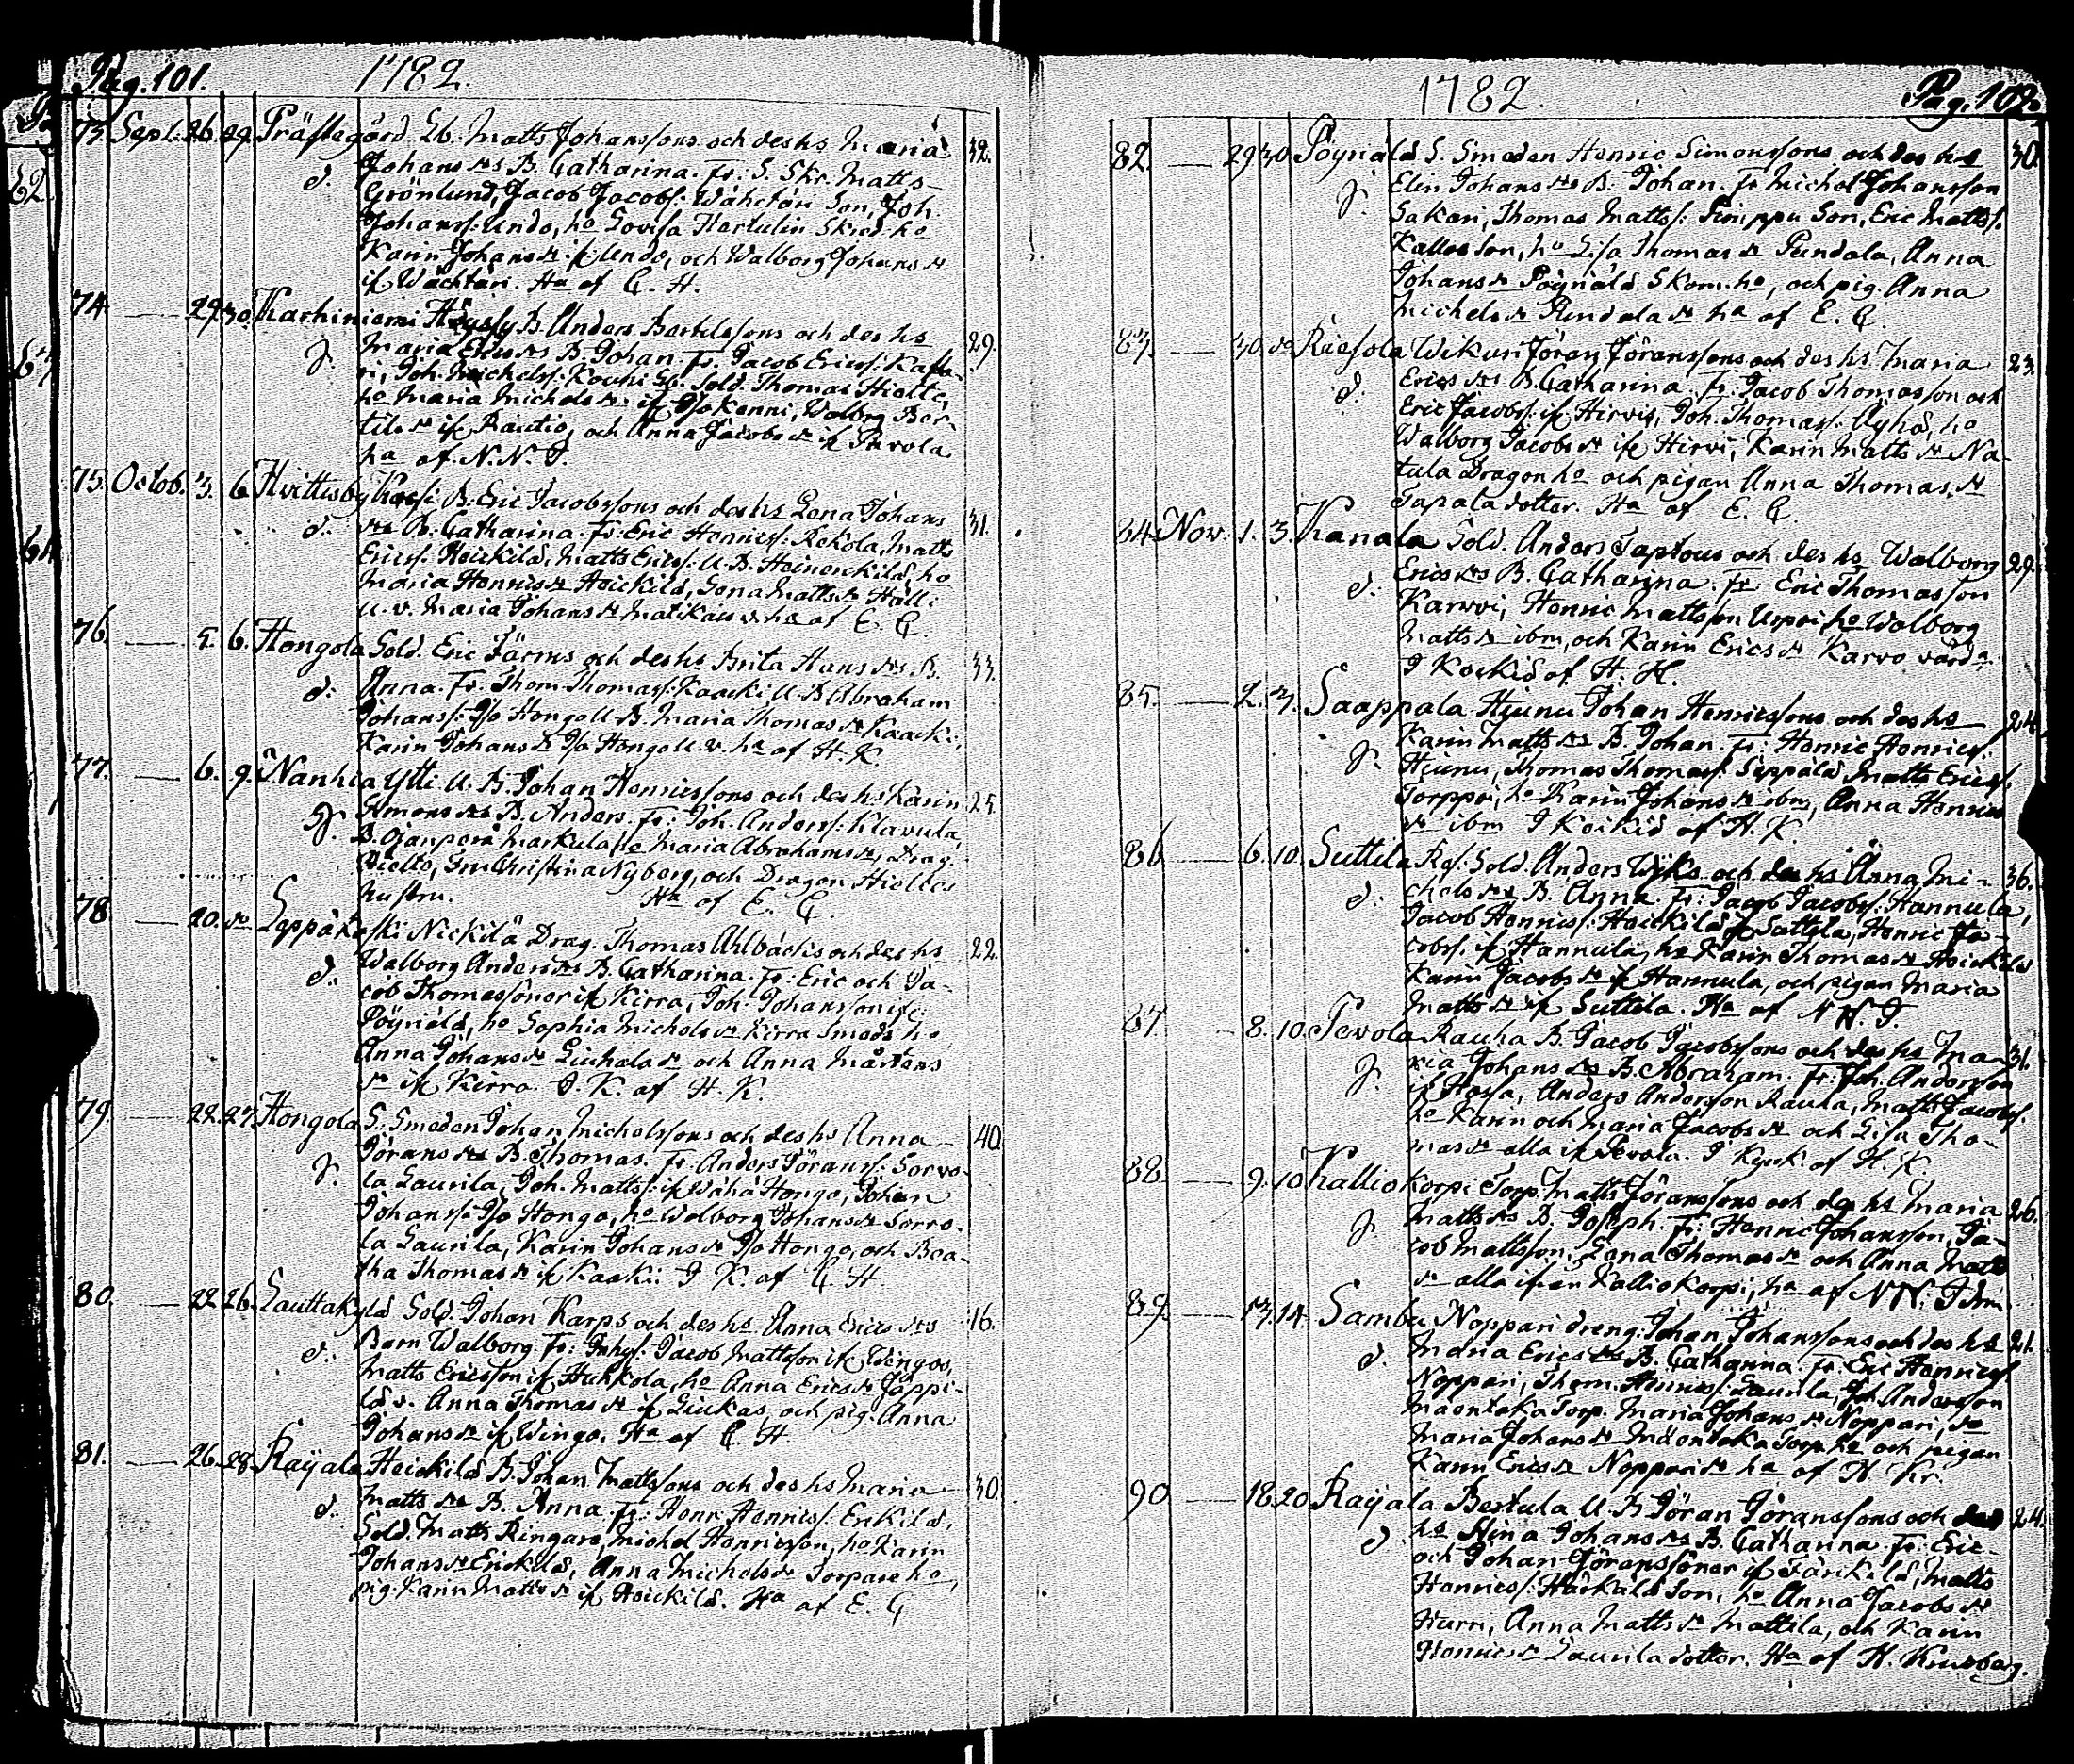 Pag. 101. 1782.
73. Sept. 26. 29. Prästegård. Lb. Matts Johanssons och dess hs Maria 32.
Johans drs B. Catharina. Fr: S. Skr. Matts
d. Grönlund, Jacob Jacobs: Wähetäri Son, Joh.
Johanss: Undo, ho Lovisa Hartulin Skred. ho
Karin Johans dr if Undo, och Walborg Johans dr
if Wächtäri. Ha af C. H.
74. — 29. 30. Karhiniemi Höyssy B. Anders Bertilssons och des hs 29.
Maria Erics drs B. Johan. Fr: Jacob Ericss:
g. ri, Joh. Michelss: Kouhi Lb. Sold. Thomas Hielte,
ho Maria Michels dr. if Iso Kenni, Walbrg Ber-
tils dr if Rautio, och Anna Jacobs dr if Pärola
ha af N. N. I.
75. Octob. 3. 6. Hvittisby B. Eric Jacobssons och des hs Lena Johans 31.
d. drs B. Catharina. Fr: Eric Henricss: Rekola, Matts
Ericss: Heickilä, Matts Ericss: U. B. ho
Maria Henrics dr Heickilä, Lena Matts dr Hälli
u. v. Maria Johans dr ha af E. C.
76. — 5. 6. Hongola Sold. Eric Järms och des hs Brita Hans drs. B. 33.
d: Anna. Fr: Thom. Thomass: Kaacki U. B Abraham
Johanss: Iso Hongo U. B. Maria Thomas dr Kaacki,
Karin Johans dr Iso Hongo u. v. ha af H. K.
77. — 6. 9. Nanhia Ytti U. B. Johan Henricssons och des hs Karin 25.
Simons drs B. Anders. Fr: Joh. Anderss: Klavula,
g. B. Ojanperä Markula, ho Maria Abrahams dr, Drag.
Hielte, Christina Nyberg, och Dragon Hieltes
hustru. Ha af E. C.
78 — 20. do Leppäkoski Nickilä Drag. Thomas Ahlbäcks och des hs 22.
Walborg Anders drs B. Catharina. Fr: Eric och Ja-
d. cob Thomassöner if Kirra, Joh. Johansson if
Pöyriälä, ho Sophia Michels dr Kirra Smeds ho,
Anna Johans dr Liuhala dr och Anna Mårtens
dr if Kirra. I. K. af H. K.
79. — 22. 27. Hongola S. Smeden Johan Michelssons och des hs Anna 40.
Görans drs B. Thomas. Fr: Anders Göranss: Sorvo-
g. la Laurila, Joh. Mattss: if Wähä Hongo, Johan
Johanss: Iso Hongo, ho Walborg Johans dr Sorvo-
la Laurila, Karin Johans dr Iso Hongo, och Bea-
tha Thomas dr if Kaaki. I K. af C. H
80. — 22. 26. Lauttakylä Sold. Johan Karps och des hs Anna Erics drs 16.
Barn Walborg. Fr: Inhys: Jacob Mattsson if Wingos,
d. Matts Ericsson if Huhkola, ho Anna Erics dr Jäppi-
lä v. Anna Thomas dr if Liukas, och pig. Anna
Johans dr if Wingo. Ha af C. H
81. — 26. 28. Raijala Heickilä B. Johan Mattssons och des hs Maria 30.
Matts drs B. Anna. Fr: Henr. Henricss: Erikilä,
d. Sold. Matts Ringare, Michel Henricsson, ho Karin
Johans dr Erickilä, Anna Michels dr Torpare ho,
pig. Karin Matts dr if Heickilä. Ha af E. C
1782. Pag. 102.
82. — 29 30. Pöyriälä S. Smeden Henric Simonssons och des hs 30.
Elin Johans drs B. Johan. Fr Michel Johansson
g. Sakari, Thomas Mattss: Simppu Son, Eric Mattss:
Kallos Son, ho Lisa Thomas dr Pundala, Anna
Johans dr Pöyriälä Skom. ho, och pig. Anna
Michels dr Pundala dr ha af E. C.
83. — 30. do Riesola Wikari Jöran Jöranssons och des hs Maria 23.
Erics drs B. Catharina. Fr: Jacob Thomasson och
d. Eric Jacobss: if Hirvis, Joh. Thomass: Äyhö, ho
Walborg Jacobs dr if Hirvi, Karin Matts dr Na-
tula Dragon ho och pigan Anna Thomas dr
Tapala dotter. Ha af E. C.
84. Nov. 1. 3. Kanala Sold. Anders Taptous och des hs Walborg 29.
Erics drs B. Catharina. Fr Eric Thomasson
d. Karwoi, Henric Mattsson ho Walborg
Matts dr ibm, och Karin Erics dr Karvo
I Kockiö af H. K.
85. — 2. 3. Saappala Hiunu Johan Henricssons och des hs 24.
Karin Matts drs B. Johan. Fr: Henric Henricss:
g. Hiunu, Thomas Thomass: Seppälä Matts Ericss:
Torppa, ho Karin Johans dr ibm, Anna Henrics
dr ibm I Kockiö af H. K
86 — 6. 10. Suttila Sold. Anders Wijks och des hs Anna Mi- 36.
chels drs B. Anna. Fr: Jacob Jacobss: Hannula,
d. Jacob Henricss: Heickilä if Suttila, Henric Ja-
cobss. if Hannula, ho Karin Thomas dr Heickilä
Karin Jacobs dr if Hannula, och pigan Maria
Matts dr if Suttila. Ha af N N. I.
87 — 8. 10. Tevola Rauha B. Jacob Jacobssons och des hs Ma- 31.
ria Johans drs B. Abraham. Fr: Joh. Andersson
g. if Hossa, Anders Andersson Rauha, Matts Jacobss.
ho Karin och Maria Jacobs dr och Lisa Tho-
mas dr alla if Tevola. I Kyrk. af H. K.
88 — 9. 10 Kalliokorpi Torp. Matts Jöranssons och des hs Maria 26.
g. Matts drs B. Joseph. Fr: Henric Johansson, Ja-
cob Mattsson, Lena Thomas dr och Anna Matts
dr alla ifrån Kalliokorpi, ha af N N. Idm.
89. — 13. 14. Sambu Noppari dreng. Johan Johanssons och des hs 21.
d. Maria Erics drs B. Catharina. Fr. Eric Henricss
Noppari, Thom. Henricss: Laurila, Joh. Andersson
Mäontaka Torp. Maria Johans dr Noppari,
Maria Johans dr Mäontaka Torp. ho och pigan
Karin Erics dr Noppari dr ha af H Kr.
90 — 18 20 Raijala Bertula U. B Jöran Jöranssons och des 24.
hs Stina Johans drs B. Catharina. Fr: Eric
d och Johan Jöranssöner if Färikilä, Matts
Henricss: Härkälä Son, ho Anna Jacobs dr
Hurri, Anna Matts dr Mattila, och Karin
Henrics dr Laurila dotter. Ha af H. Krusberg.